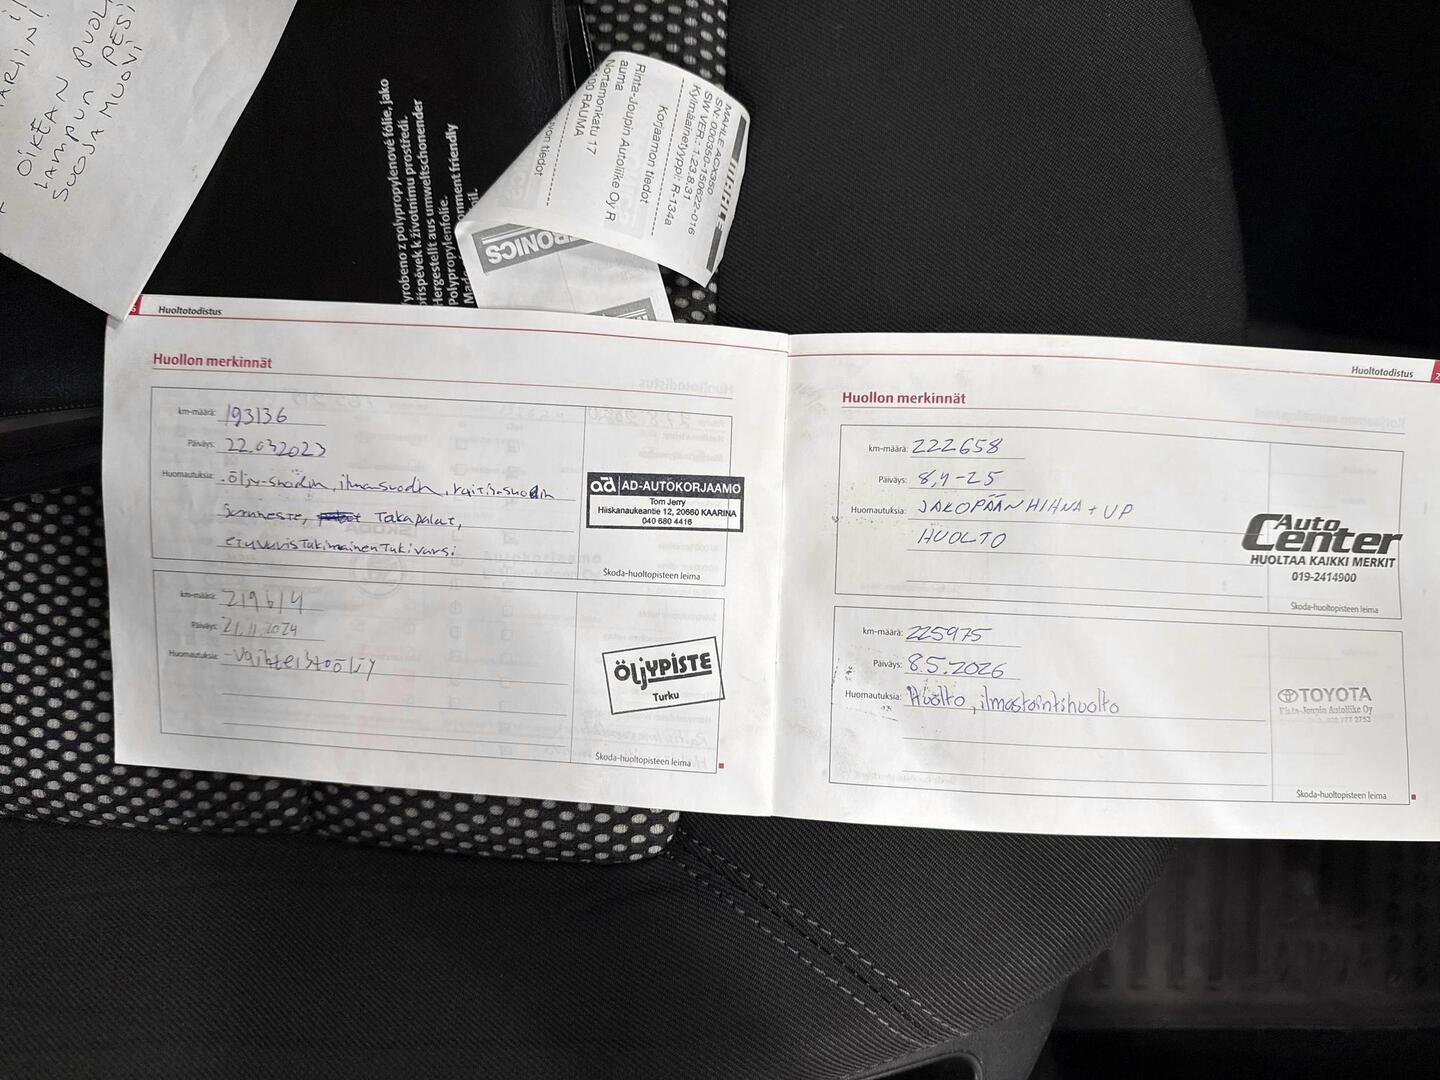 OIKEAN PUOL
LAMPUN PESI
SUOJAMUOVI
yrobeno z polypropylenové fólie, jako
příspěvek k životnímu prostředí.
Hergestellt aus umweltschonender
Polypropylenfolie.
MAHLE ACX350
SN: 000350-150622-016
SW VER.: 1.23.8.31
Kylmäainetyyppi: R-134a
Korjaamon tiedot
Rinta-Jouppin Autoliike Oy R
auma
Nortamonkatu 17
00 RAUMA
RONICS
Huoltotodistus
Huollon merkinnät
km-määrä: 193136
Päiväys: 22.032023
Huomautuksia: öljy-suodin, ilmasuodin, raitis-suodin
Jarrneste, Takapalat,
etuvuvistukimainen Tukivarsi
ad AD-AUTOKORJAAMO
Tom Jerry
Hiiskanaukeantie 12, 20660 KAARINA
040 680 4416
Škoda-huoltopisteen leima
km-määrä: 219614
Päiväys: 21.11.2024
Huomautuksia: - Vaihteistoöljy
ÖLJYPISTE
Turku
Škoda-huoltopisteen leima
Huoltotodistus
Huollon merkinnät
km-määrä: 222658
Päiväys: 8,4-25
Huomautuksia: JAKOPÄÄN HIHNA + VP
HUOLTO
Auto
Center
HUOLTAA KAIKKI MERKIT
019-2414900
Škoda-huoltopisteen leima
km-määrä: 225975
Päiväys: 8.5.2026
Huomautuksia: Huolto, ilmastointihuolto
TOYOTA
Rinta-Joupin Autoliike Oy
Škoda-huoltopisteen leima